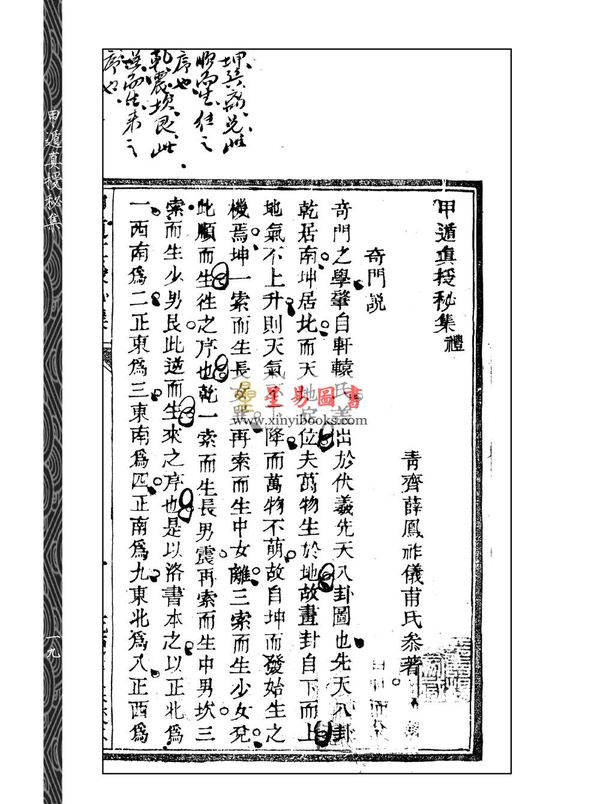 坤巽離兌此
順而生往之
序也
乾震坎艮此
逆而生來之
序也
甲遁真授秘集禮
青齊薛鳳祚儀甫氏叅著
奇門説
奇門之學肇自軒轅氏義出於伏羲先天八卦圖也先天八卦
乾居南坤居北而天地定位夫萬物生於地故畫卦自下而上
地氣不上升則天氣不下降而萬物不萌故自坤而發始生之
機焉坤一索而生長女巽再索而生中女離三索而生少女兌
此順而生徃之序也乾一索而生長男震再索而生中男坎三
索而生少男艮此逆而生來之序也是以洛書本之以正北爲
一西南爲二正東爲三東南爲四正南爲九東北爲八正西爲
甲遁真授秘集
一九
星易圖書
www.xinyibooks.com